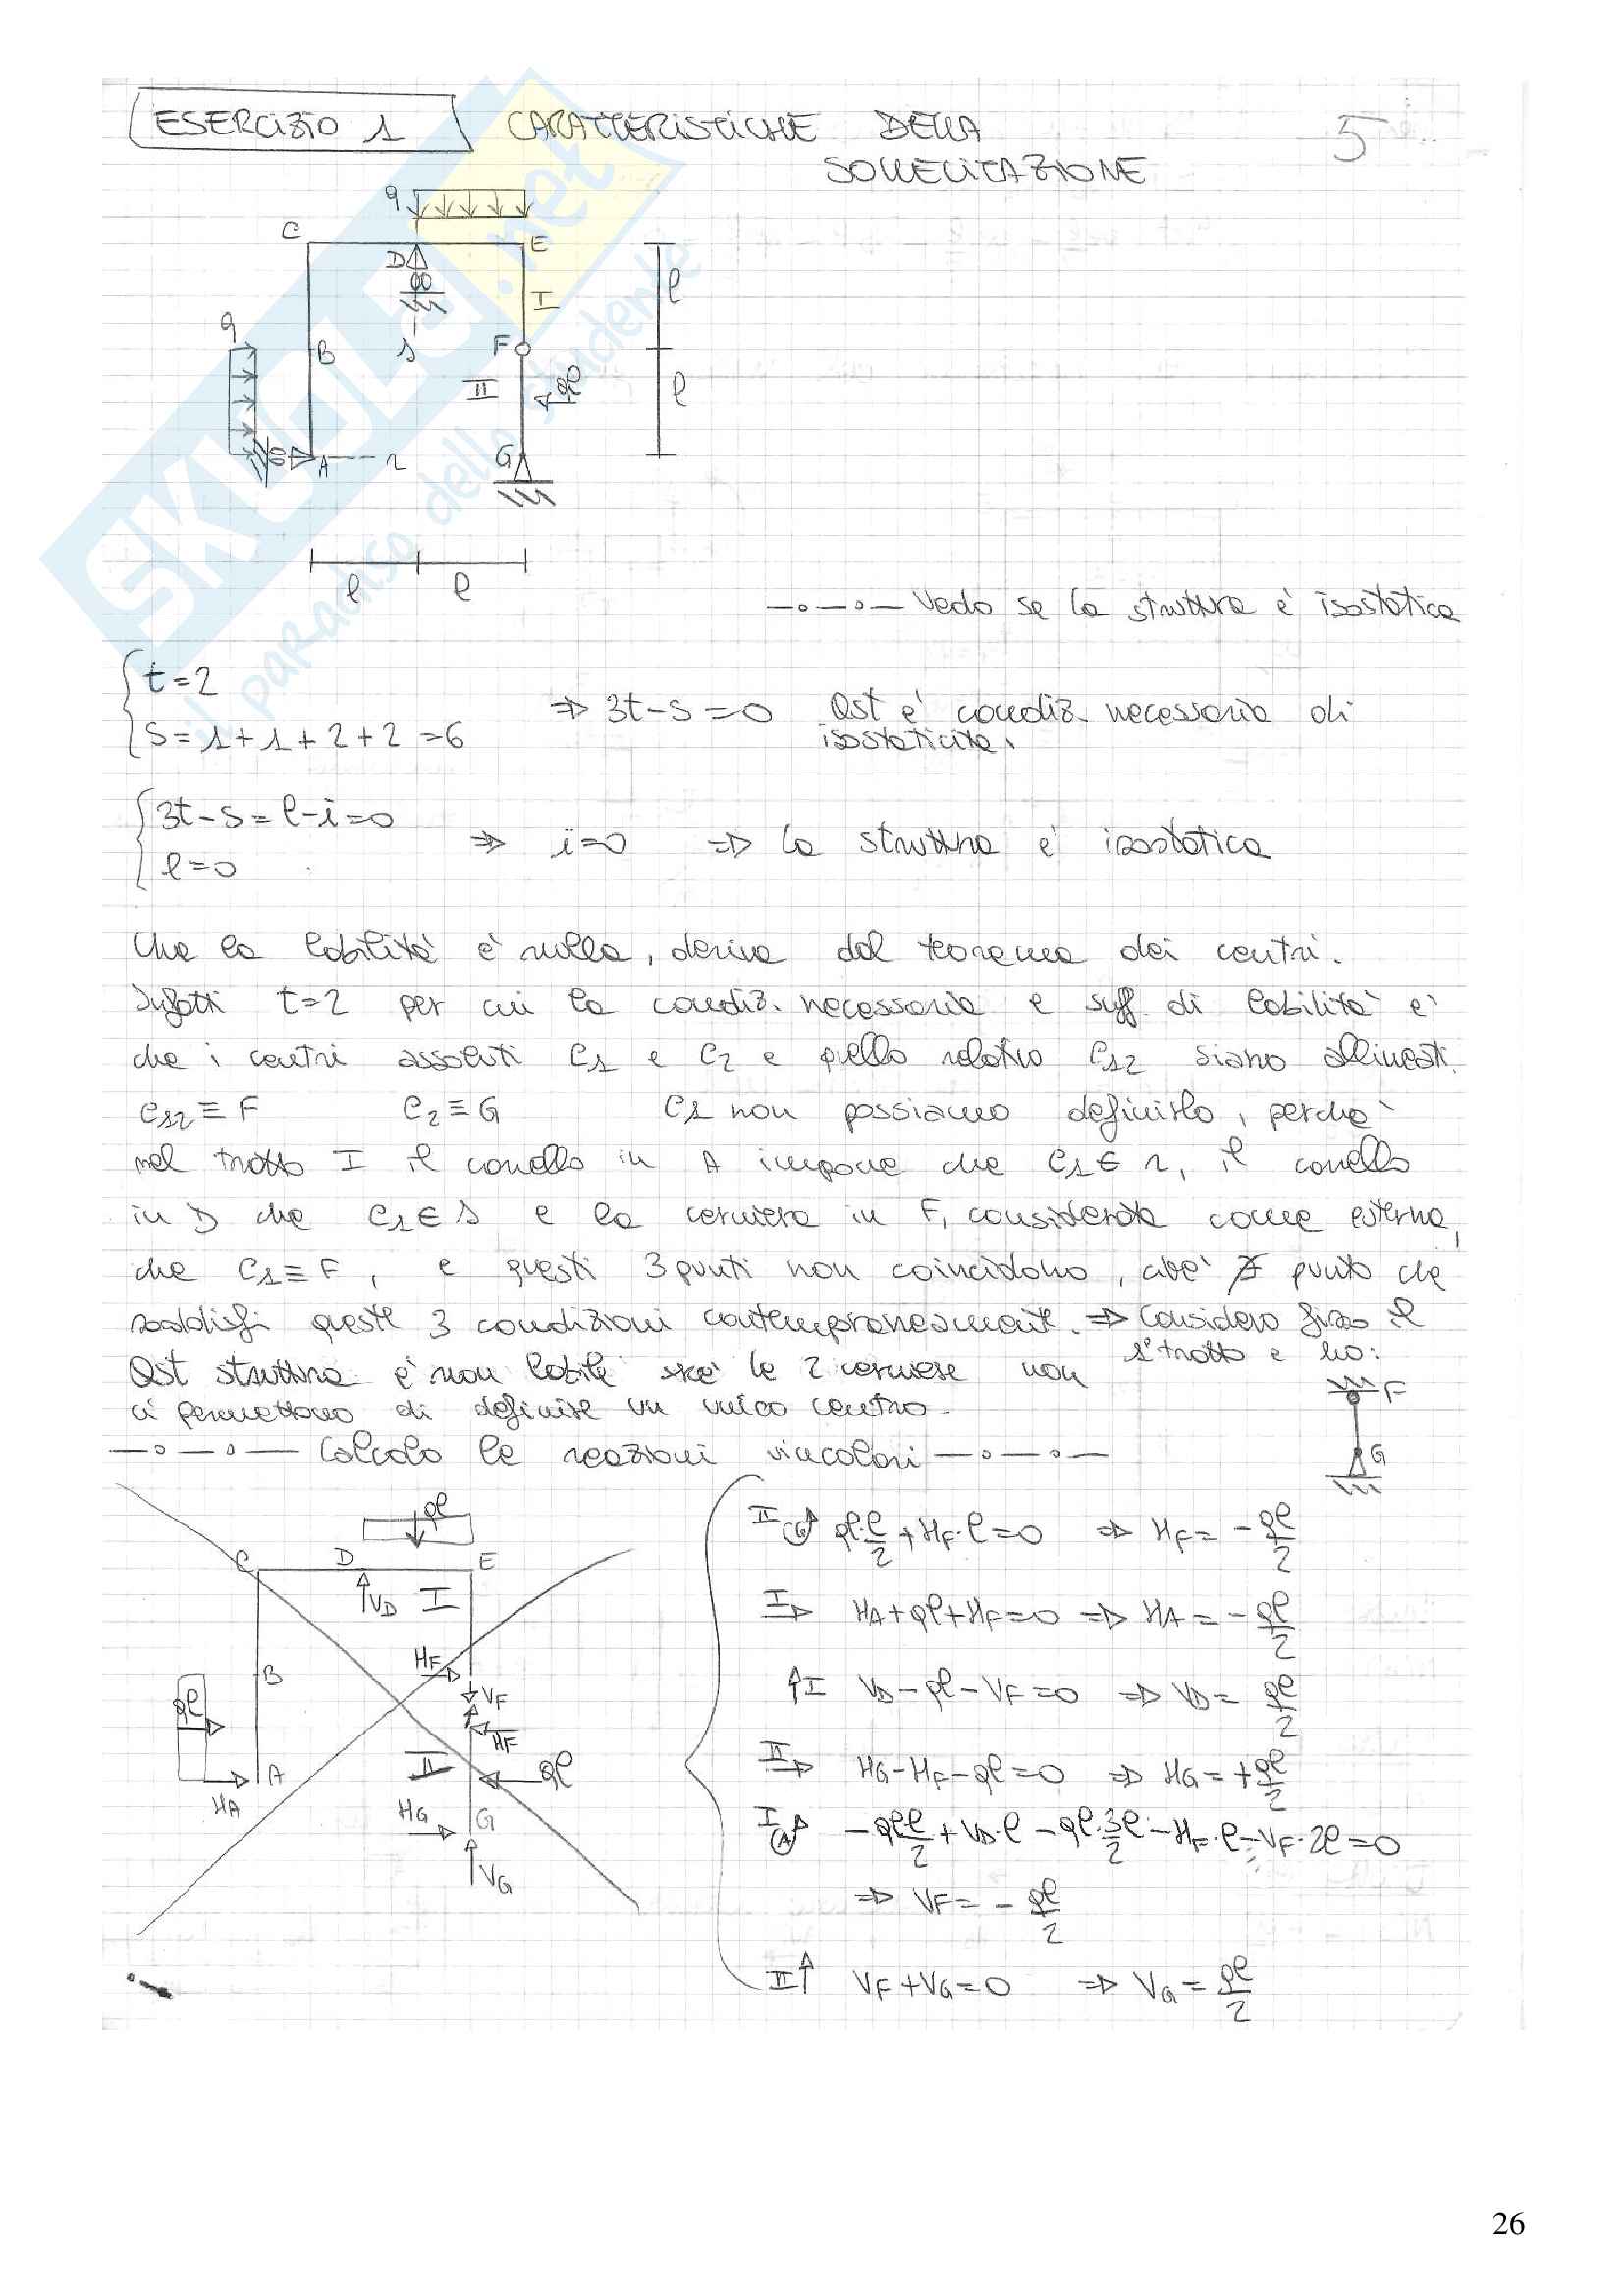 ESERCIZIO 1 CARATTERISTICHE DELLA
SOLLECITAZIONE
5
q
C D E
I
l
q
B s F
II ql
l
A r G
l l
SKUOLA.net
il paradiso dello studente
—o—o— Vedo se la struttura è isostatica
t=2
S=1+1+2+2=6 ⇒ 3t-s=0 Qst è condiz. necessaria di
isostaticità.
3t-s=l-i=0
l=0 ⇒ i=0 ⇒ la struttura è isostatica
Che la labilità è nulla, deriva dal teorema dei centri.
Infatti t=2 per cui la condiz. necessaria e suff di labilità è
che i centri assoluti C1 e C2 e quello relativo C12 siano allineati.
C12≡F C2≡G C1 non possiamo definirlo, perché
nel tratto I il carrello in A impone che C1∈r, il carrello
in D che C1∈s e la cerniera in F, considerata come esterna,
che C1≡F, e questi 3 punti non coincidono, cioè ∄ punto che
soddisfi queste 3 condizioni contemporaneamente. ⇒ Considero fisso il
1° tratto e ho:
Qst struttura è non labile xké le 2 cerniere non
ci permettono di definire un unico centro.
F
G
—o—o— Calcolo le reazioni vincolari —o—o—
ql
C D E
VD I
HF
B
VF
ql HF
II ql
A
HA HG G
VG
I(G) ql·l/2+HF·l=0 ⇒ HF=-ql/2
I HA+ql+HF=0 ⇒ HA=-ql/2
↑I VD-ql-VF=0 ⇒ VD=ql/2
II HG-HF-ql=0 ⇒ HG=+ql/2
I(A) -ql·l/2+VD·l-ql·3l/2-HF·l-VF·2l=0
⇒ VF=-ql/2
II↑ VF+VG=0 ⇒ VG=ql/2
26